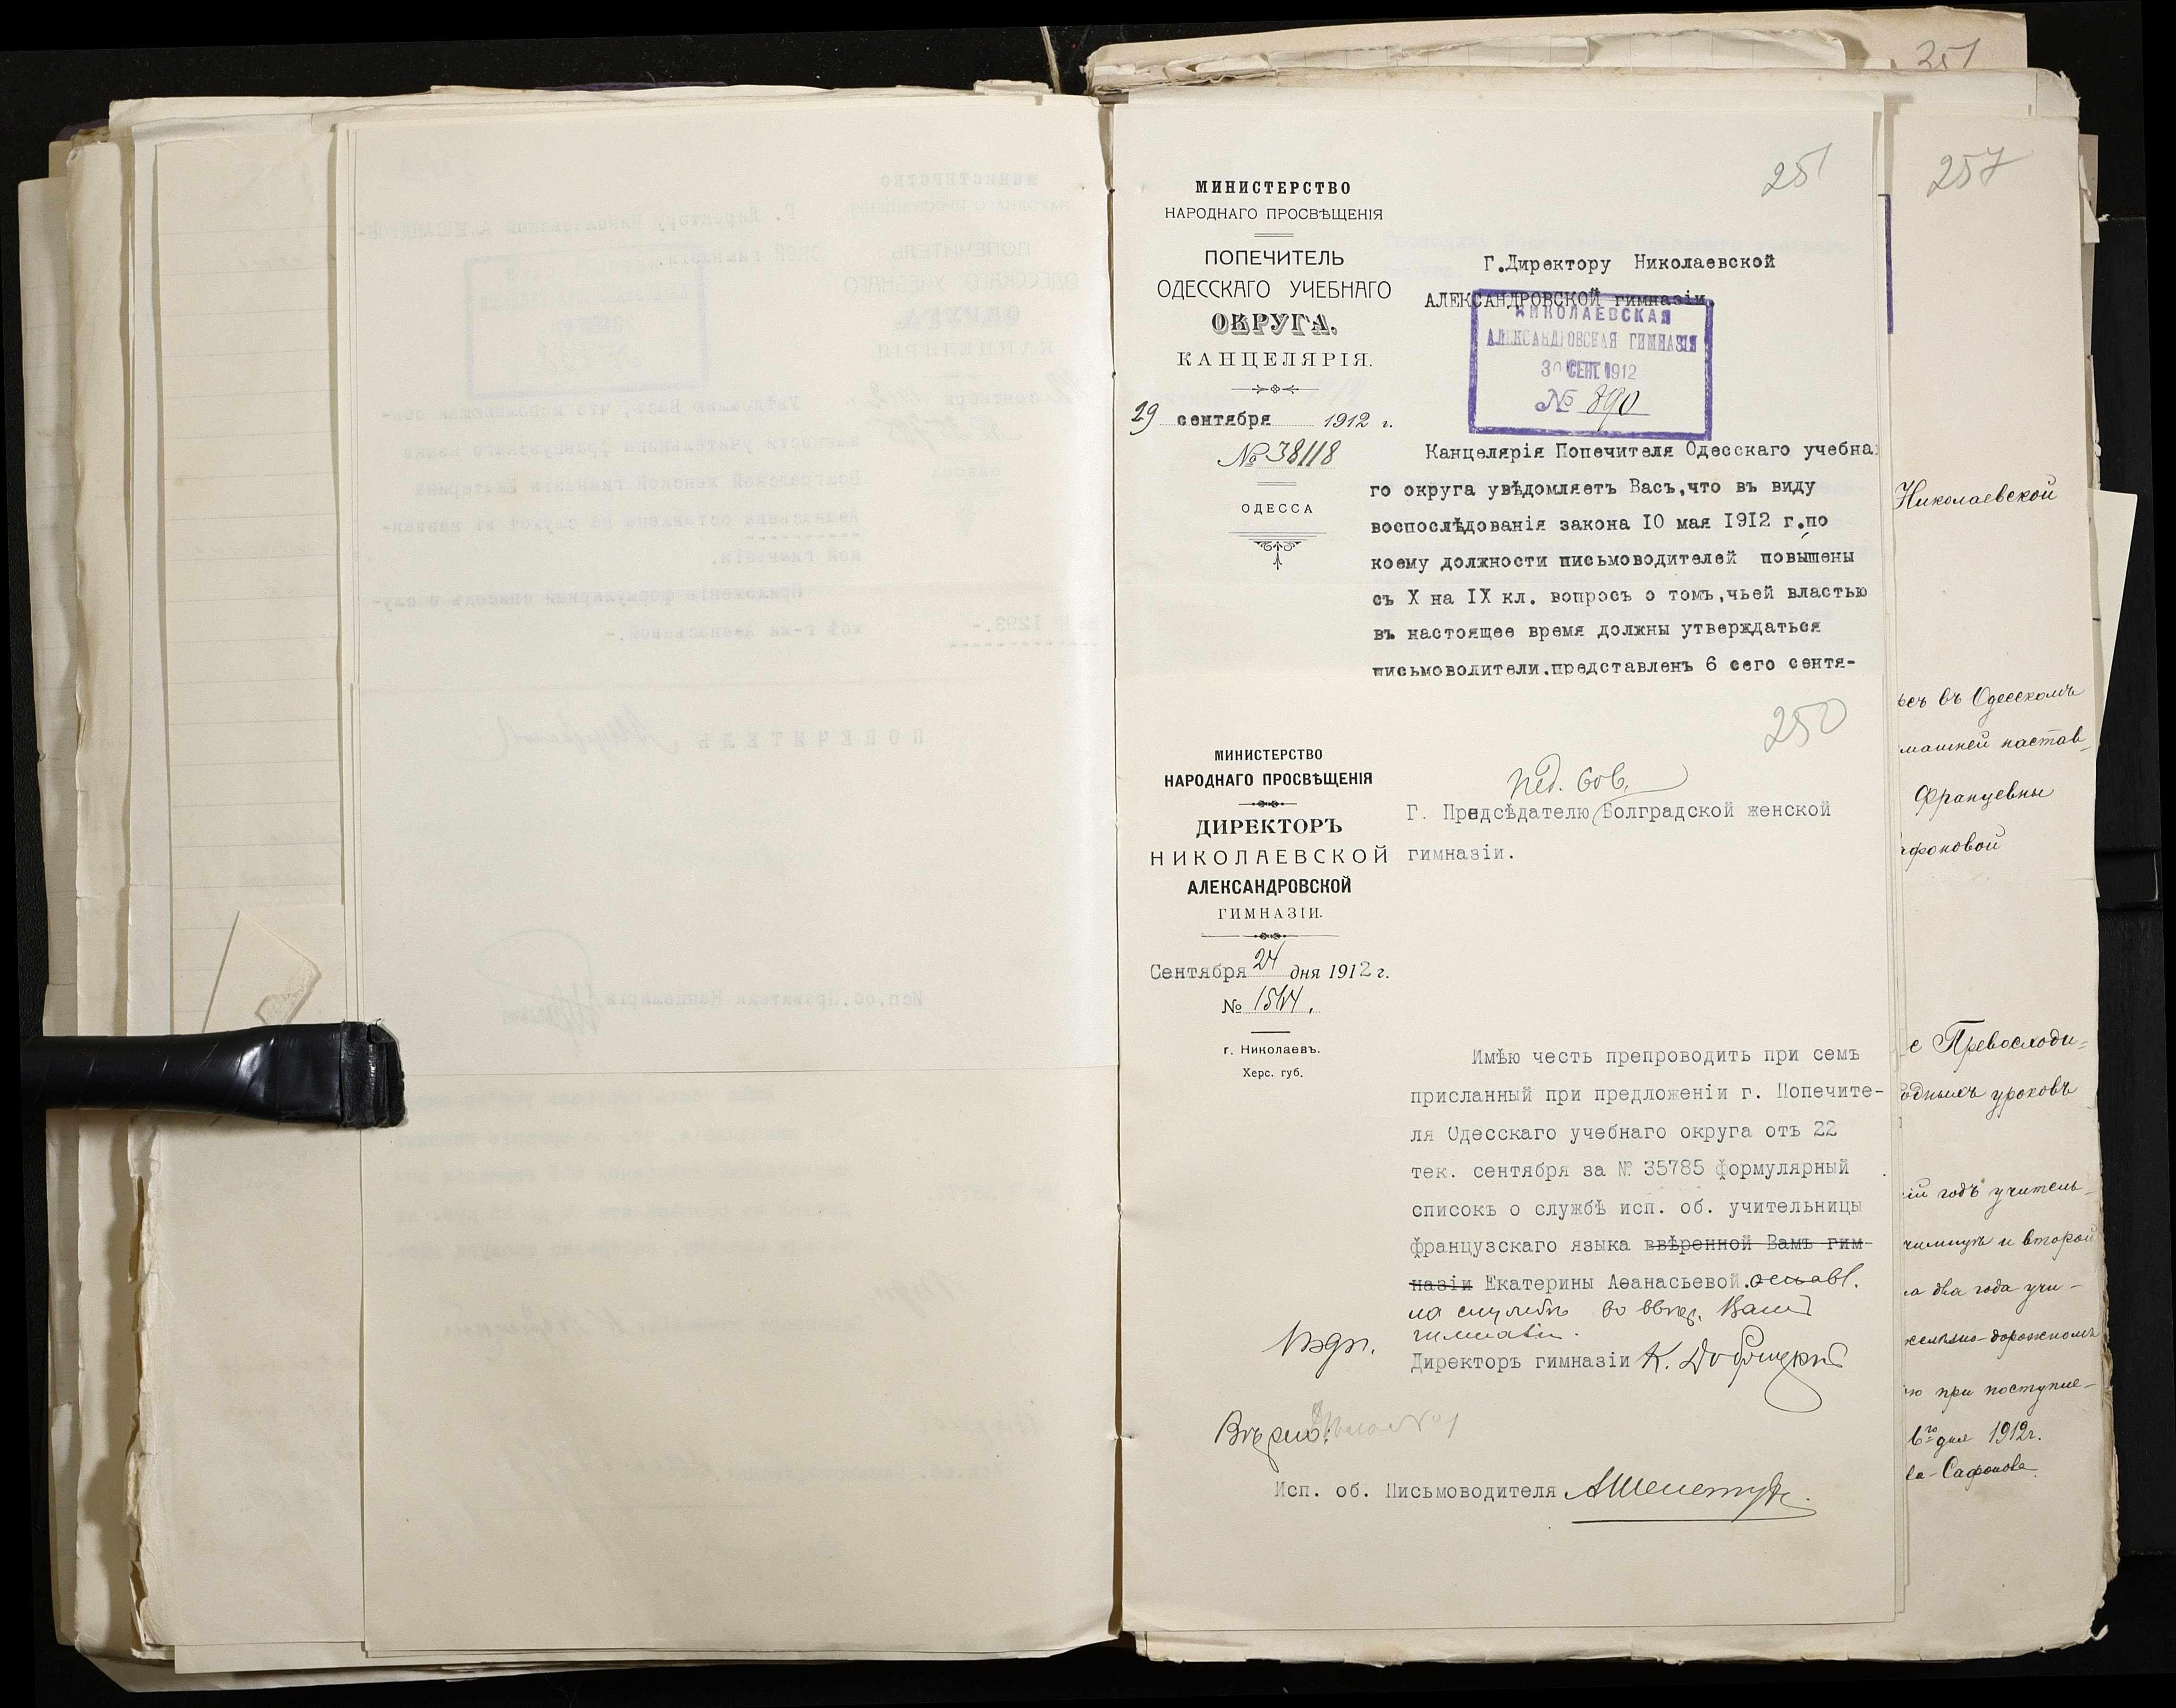 251
251
МИНИСТЕРСТВО
НАРОДНАГО ПРОСВѢЩЕНІЯ
ПОПЕЧИТЕЛЬ
ОДЕССКАГО УЧЕБНАГО
ОКРУГА.
КАНЦЕЛЯРІЯ.
29 сентября 1912 г.
№ 38118
ОДЕССА
Г.Директору Николаевской
АЛЕКСАНДРОВСКОЙ гимназіи
НИКОЛАЕВСКАЯ
АЛЕКСАНДРОВСКАЯ ГИМНАЗІЯ
30 СЕНТ. 1912
№ 890
Канцелярія Попечителя Одесскаго учебна
го округа увѣдомляетъ Васъ,что въ виду
воспослѣдованія закона 10 мая 1912 г.,по
коему должности письмоводителей повышены
съ X на IX кл. вопросъ о томъ,чьей властью
въ настоящее время должны утверждаться
письмоводители,представленъ 6 сего сентя-
250
МИНИСТЕРСТВО
НАРОДНАГО ПРОСВѢЩЕНІЯ
ДИРЕКТОРЪ
НИКОЛАЕВСКОЙ
АЛЕКСАНДРОВСКОЙ
ГИМНАЗІИ.
Сентября 24 дня 1912 г.
№ 1544.
г. Николаевъ.
Херс. губ.
пед. сов.
Г. Предсѣдателю Болградской женской
гимназіи.
Имѣю честь препроводить при семъ
присланный при предложеніи г. Попечите-
ля Одесскаго учебнаго округа отъ 22
тек. сентября за № 35785 формулярный
списокъ о службѣ исп. об. учительницы
французскаго языка ввѣренной Вамъ гим-
назіи Екатерины Аѳанасьевой. оставл.
на службѣ во ввѣр. Вамъ
гимназіи.
Подп.
Директоръ гимназіи К. Добрицкій
Вѣрно:
Исп. об. Письмоводителя
257
Николаевской
въ Одесскомъ
машней настав-
Францевны
афоновой
е Превосходи-
одныхъ уроковъ
ій годъ учитель-
и второй
а два года учи-
желѣзно-дорожномъ
ю при поступле-
6го дня 1912г.
ва-Сафонова.